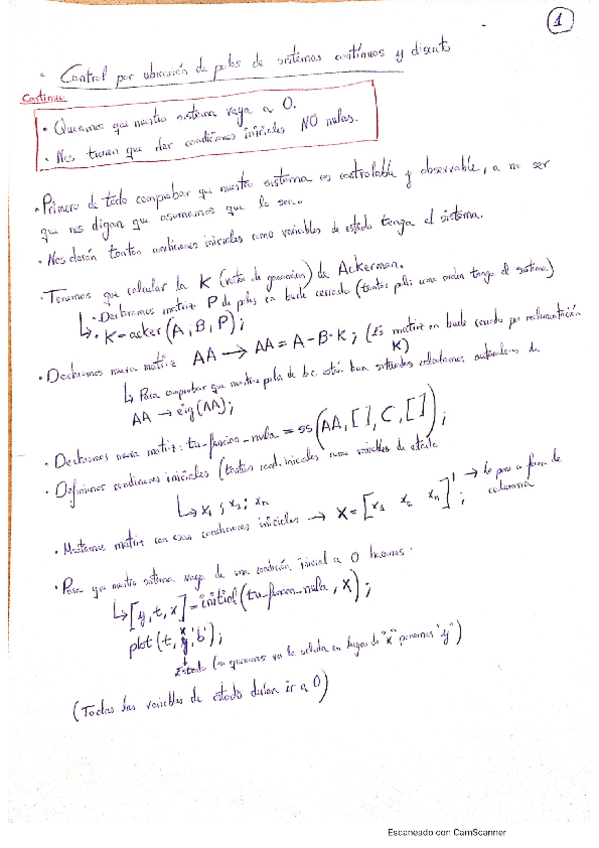 1
· Control por ubicación de polos de sistemas continuos y discreto
Continuo
· Queremos que nuestro sistema vaya a 0.
· Nos tienen que dar condiciones iniciales NO nulas.
· Primero de todo comprobar que nuestro sistema es controlable y observable, a no ser
que nos digan que asumamos que lo son..
· Nos darán tantas condiciones iniciales como variables de estado tenga el sistema.
· Tenemos que calcular la K (vector de ganancias) de Ackerman.
↳ Declaramos matriz P de polos en bucle cerrado (tantos polos como orden tenga el sistema)
↳ · K=acker(A,B,P);
· Declaramos nueva matriz AA → AA = A-B·K; (Es matriz en bucle cerrado por realimentación
K)
↳ Para comprobar que nuestros polos de b.c. están bien situados calculamos autovalores de
AA → eig(AA);
· Declaramos nueva matriz: tu_funcion_nula = ss(AA,[],C,[]);
· Definimos condiciones iniciales (tantas cond. iniciales como variables de estado
↳ x1; x2; xn
· Montamos matriz con esas condiciones iniciales → X=[x1 x2 xn]'; → Lo pasa a forma de
columna
· Para que nuestro sistema vaya de una condición inicial a 0 hacemos:
↳ [y,t,x]=initial(tu_funcion_nula, X);
plot(t,x,'b');
Estado (si queremos ver la salida en lugar de "x" ponemos "y")
(Todas las variables de estado deben ir a 0)
Escaneado con CamScanner